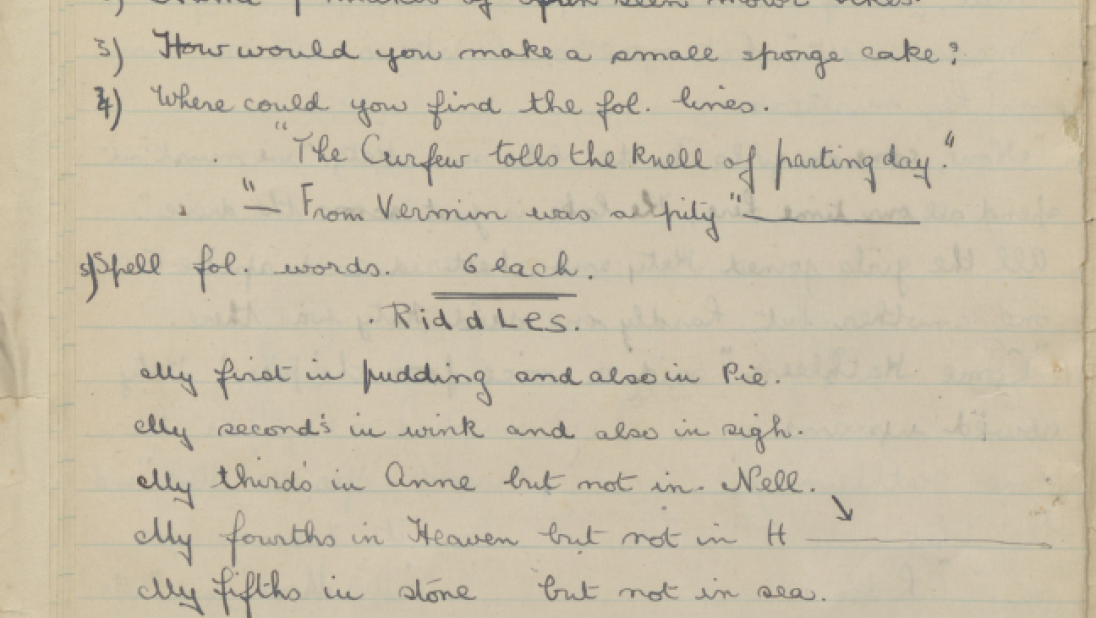 3) How would you make a small sponge cake?
4) Where could you find the fol. lines.
"The Curfew tolls the knell of parting day."
"— From Vermin was alpity" —
5) Spell fol. words. 6 each.
. Riddles.
My first in pudding and also in Pie.
My second's in wink and also in sigh.
My third's in Anne but not in. Nell.
My fourths in Heaven but not in H —
My fifths in stone but not in sea.